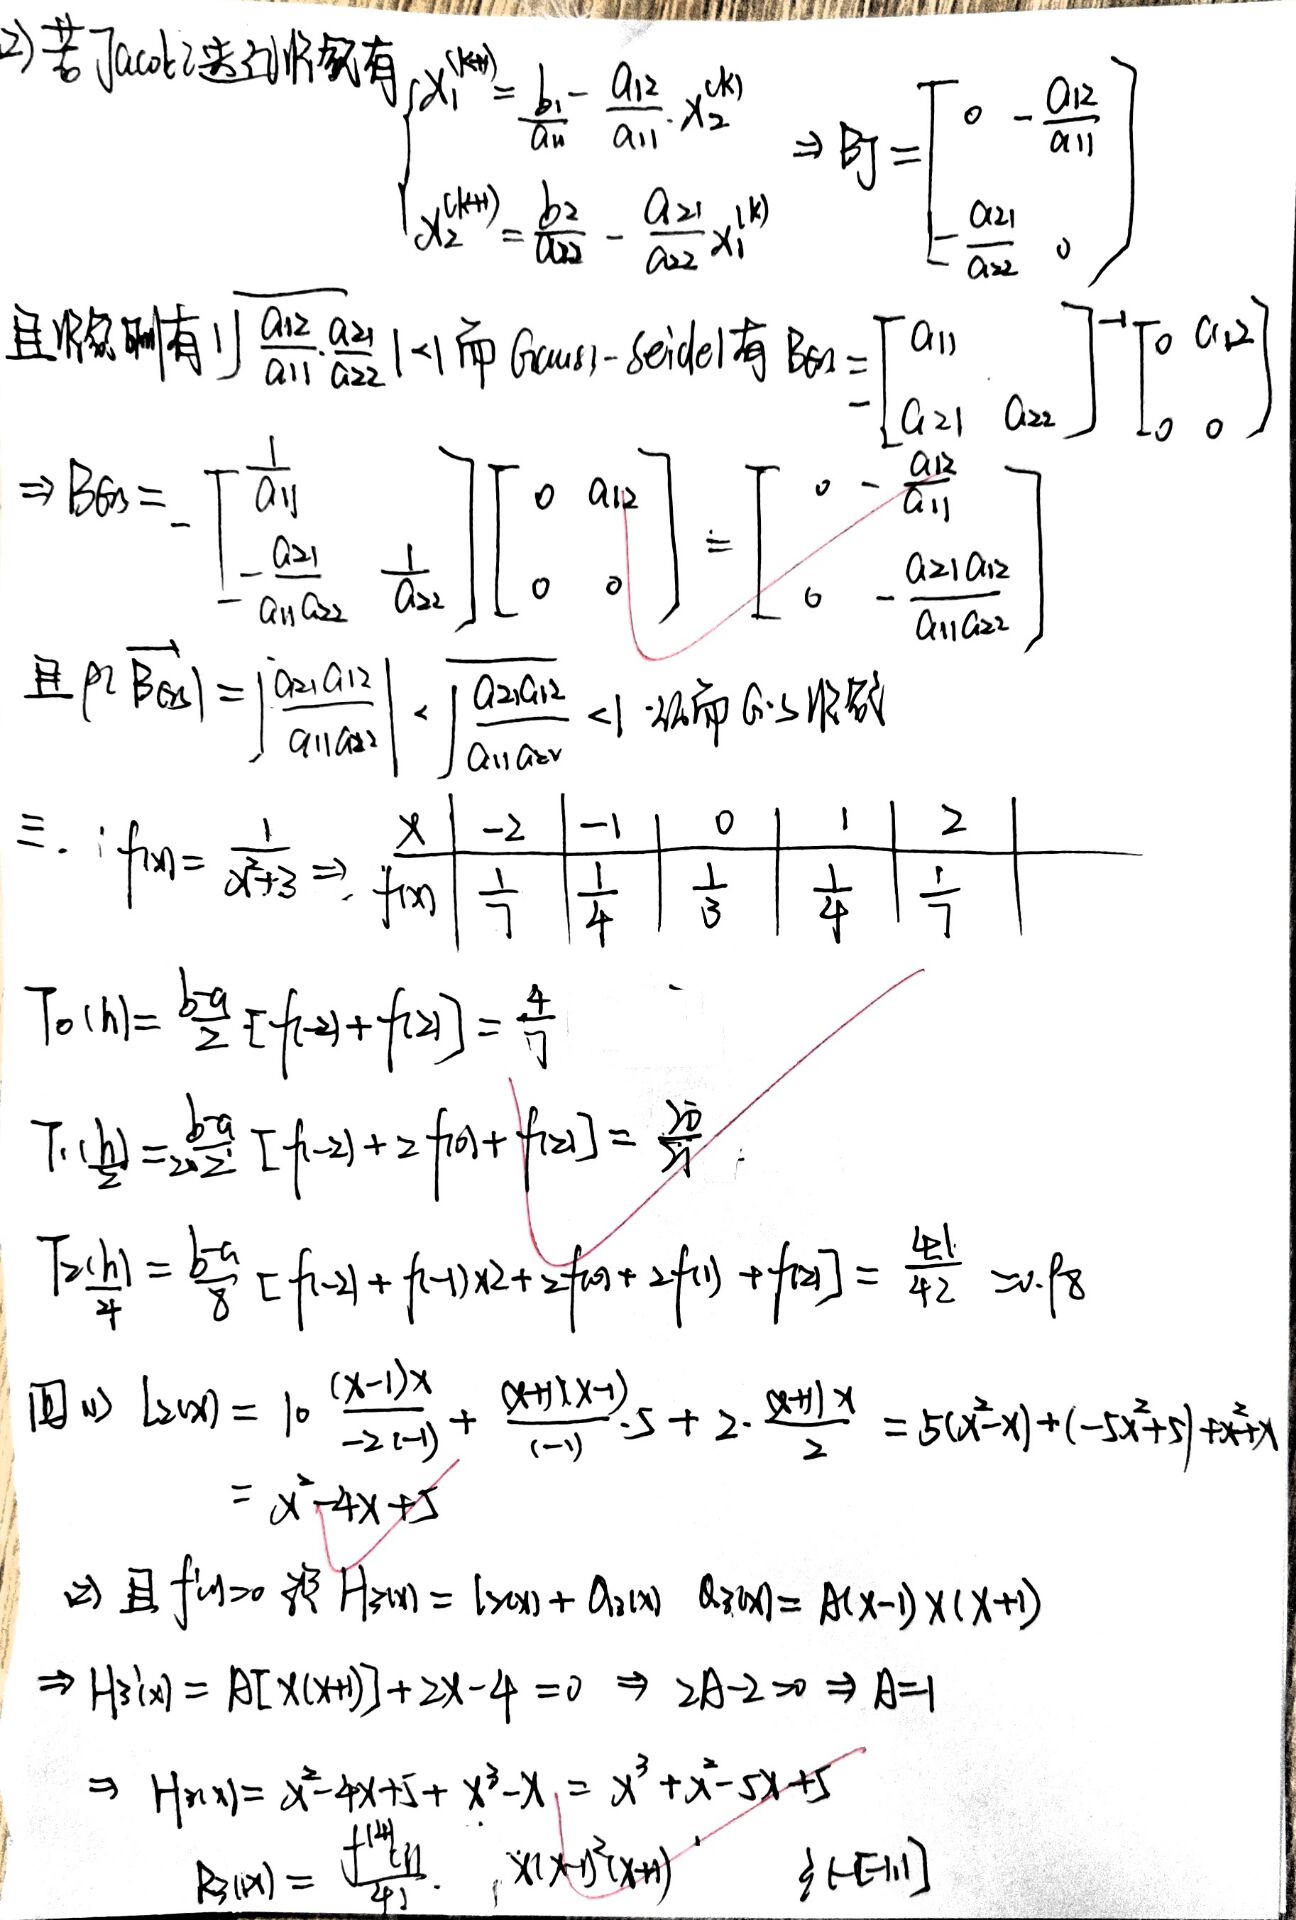 2) 若Jacobi迭代收敛有 { x₁^(k+1) = b₁/a₁₁ - a₁₂/a₁₁ · x₂^(k)
x₂^(k+1) = b₂/a₂₂ - a₂₁/a₂₂ x₁^(k) ⇒ BJ = [0 -a₁₂/a₁₁; -a₂₁/a₂₂ 0]
且收敛则有 |√(a₁₂/a₁₁ · a₂₁/a₂₂)| < 1 而 Gauss-Seidel有 BGS = -[a₁₁ ; a₂₁ a₂₂]^-1 [0 a₁₂; 0 0]
⇒ BGS = -[1/a₁₁ ; -a₂₁/(a₁₁a₂₂) 1/a₂₂] [0 a₁₂; 0 0] = [0 -a₁₂/a₁₁; 0 -a₂₁a₁₂/(a₁₁a₂₂)]
且 ρ(BGS) = |a₂₁a₁₂/(a₁₁a₂₂)| < √(a₂₁a₁₂/(a₁₁a₂₂)) < 1 从而 G·S 收敛
三. f(x) = 1/(x²+3) ⇒ x | -2 | -1 | 0 | 1 | 2
f(x) | 1/7 | 1/4 | 1/3 | 1/4 | 1/7
T₀(h) = (b-a)/2 [f(-2) + f(2)] = 4/7
T₁(h/2) = (b-a)/(2×2) [f(-2) + 2f(0) + f(2)] = 20/21
T₂(h/4) = (b-a)/8 [f(-2) + f(-1)×2 + 2f(0) + 2f(1) + f(2)] = 41/42 ≈ 0.98
四 (1) L₂(x) = 10 (x-1)x/(-2(-1)) + (x+1)(x-1)/(-1) · 5 + 2 · (x+1)x/2 = 5(x²-x) + (-5x²+5) + x²+x
= x²-4x+5
(2) 且 f'(1)=0 设 H₃(x) = L₂(x) + Q₃(x) Q₃(x) = A(x-1)x(x+1)
⇒ H₃'(x) = A[x(x+1)] + 2x-4 = 0 ⇒ 2A-2=0 ⇒ A=1
⇒ H₃(x) = x²-4x+5 + x³-x = x³+x²-5x+5
R₃(x) = f⁽⁴⁾(ξ)/4! · x(x-1)²(x+1) ξ∈[-1,1]